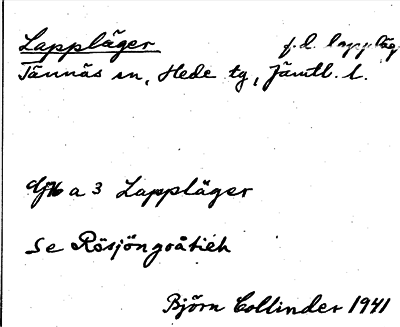 Lappläger f.d. lappläg.
Tännäs sn, Hede tg, Jämtl. l.
a 3 Lappläger
Se Rösjöngoåtieh
Björn Collinder 1941